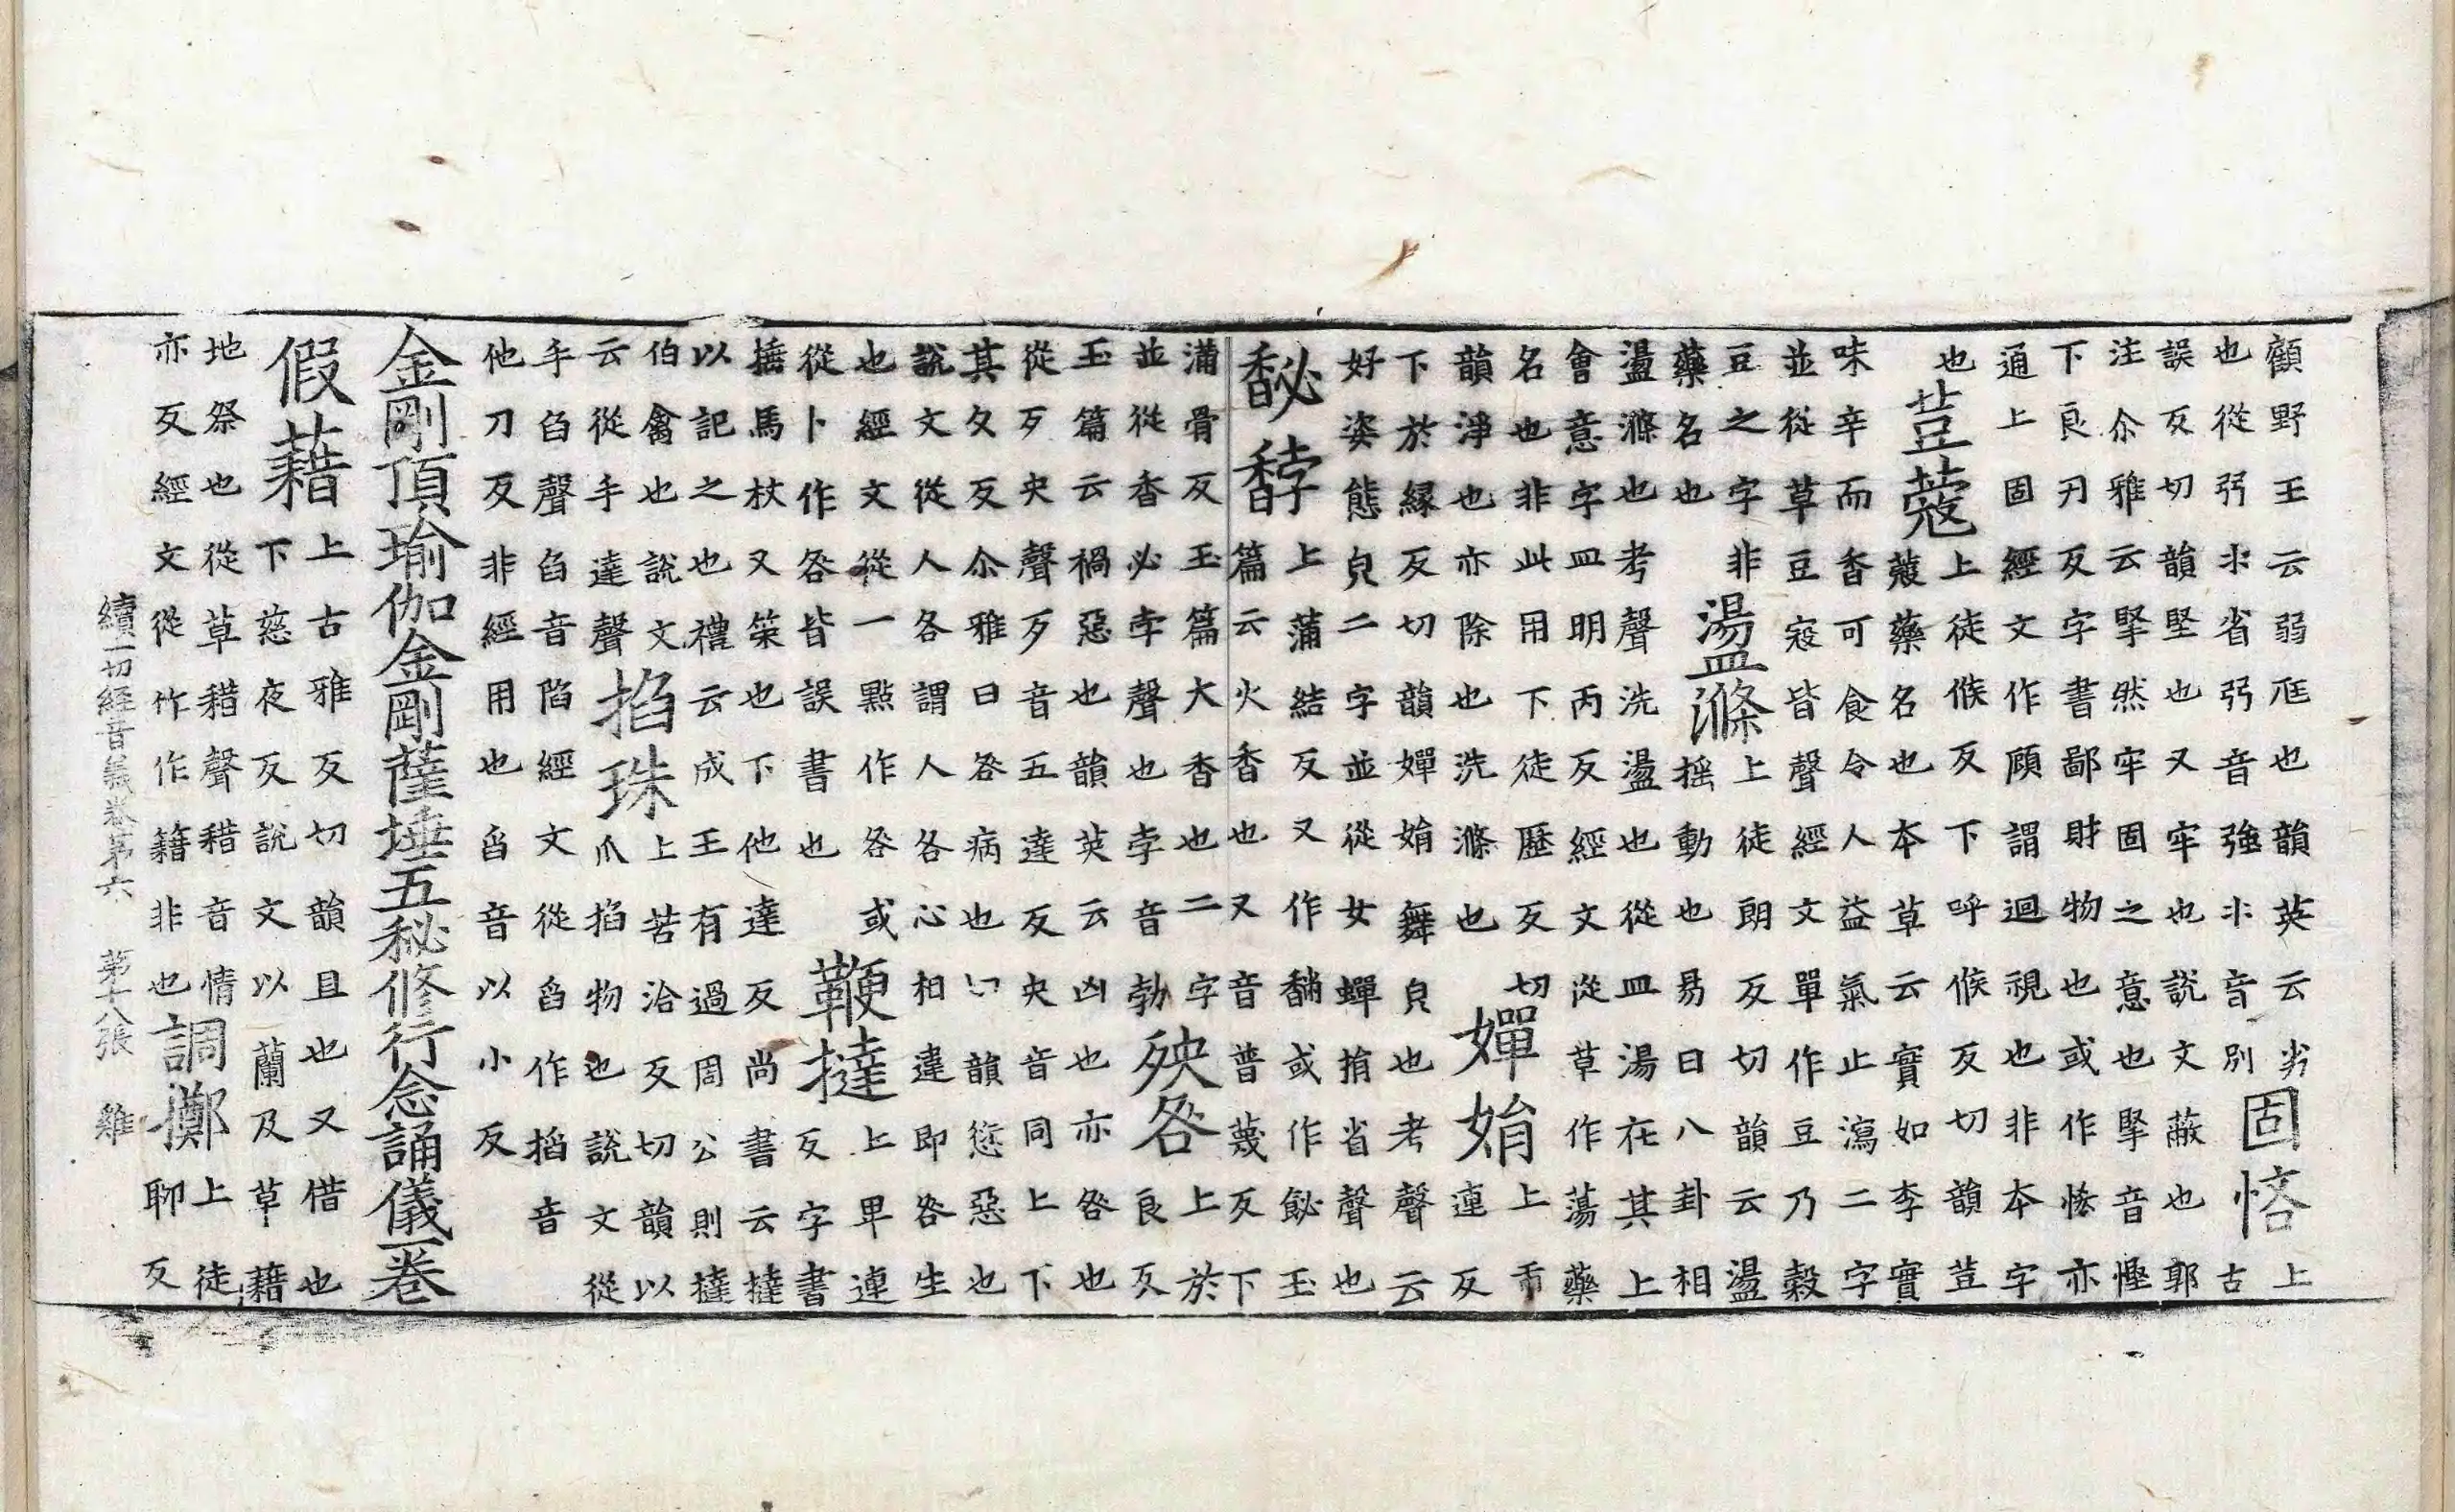 顧野王云弱尫也韻英云劣
也從弜氺省弜音強氺音別
固悋
上
古
誤反切韻堅也又牢也說文蔽也郭
注尒雅云掔然牢固之意也掔音慳
下良刃反字書鄙財物也或作悋亦
通上固經文作顧謂迴視也非本字
也
荳蔻
上徒候反下呼候反切韻荳
蔲藥名也本草云實如李實
味辛而香可食令人益氣止瀉二字
並從草豆寇皆聲經文單作豆乃穀
豆之字非
藥名也
盪滌
上徒朗反切韻云盪
搖動也易曰八卦相
盪滌也考聲洗盪也從皿湯在其上
會意字皿明丙反經文從草作蕩藥
名也非此用下徒歷反切
韻淨也亦除也洗滌也
嬋娟
上市
連反
下於緣反切韻嬋娟舞皃也考聲云
好姿態皃二字並從女蟬捐省聲也
馝馞
上蒲結反又作䭱或作飶玉
篇云火香也又音普蔑反下
蒲骨反玉篇大香也二字
並從香必孛聲也孛音勃
殃咎
上於
良反
玉篇云禍惡也韻英云凶也亦咎也
從歹央聲歹音五達反央音同上下
其久反尒雅曰咎病也切韻愆惡也
說文從人各謂人各心相違即咎生
也經文從一點作咎或
從卜作咎皆誤書也
鞭撻
上卑連
反字書
捶馬杖又策也下他達反尚書云撻
以記之也禮云成王有過周公則撻
伯禽也說文
云從手達聲
掐珠
上苦洽反切韻以
爪掐物也說文從
手臽聲臽音陷經文從舀作搯音
他刀反非經用也舀音以小反
金剛頂瑜伽金剛薩埵五秘修行念誦儀一卷
假藉
上古雅反切韻且也又借也
下慈夜反說文以蘭及草藉
地祭也從草耤聲耤音情
亦反經文從竹作籍非也
調擲
上徒
聊反
續一切經音義卷第六 第十八張 雞